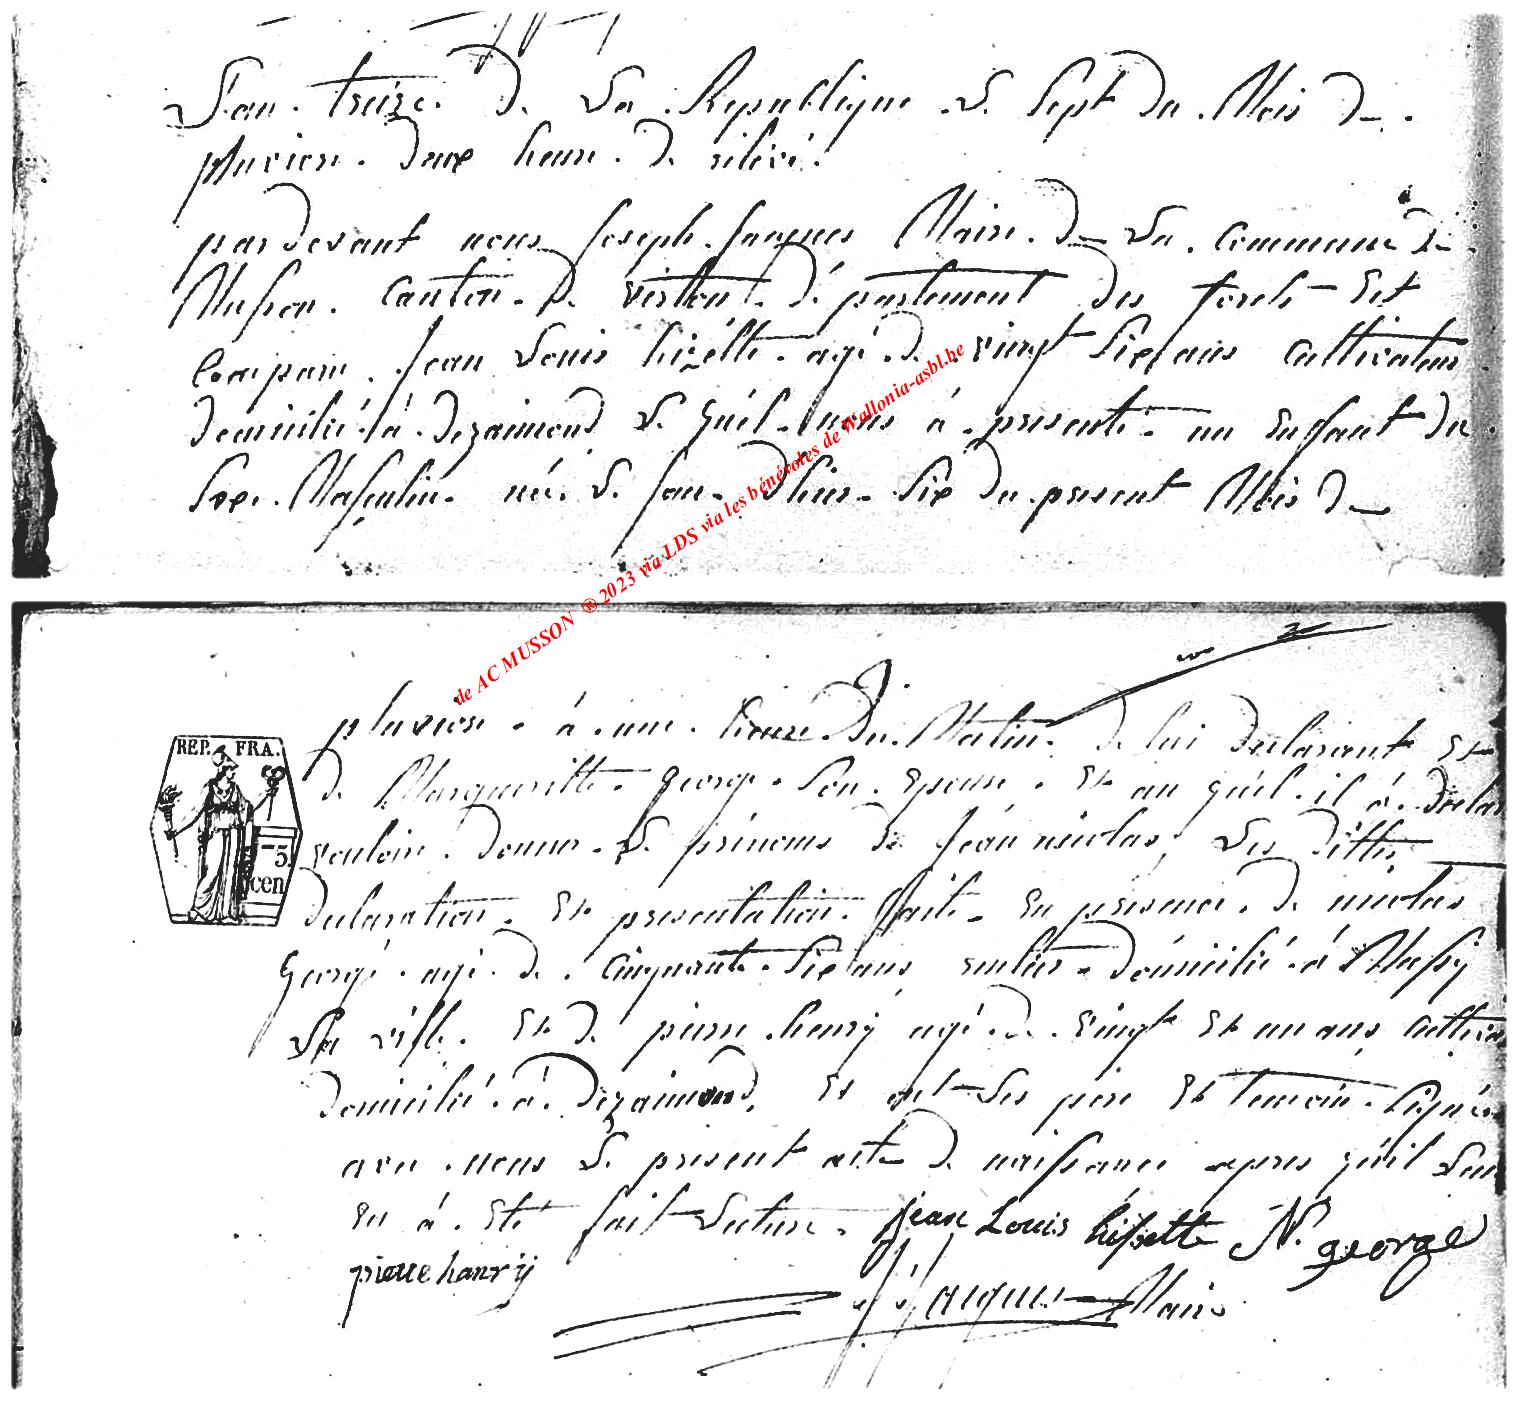 L'an treize de La Republique Le Sept du Mois de
pluviose deux heure de relevé
pardevant nous Joseph Jacques Maire de La Commune de
Musson Canton de virton département des forets Est
Comparu Jean Louis hizette agé de vingt Six ans Cultivateur
domicilié à dezaimond Le quel nous à presenté un Enfant du
Sexe Masculin né Le Jour d'hier Six du present Mois de
pluviose à une heure Du Matin de lui declarant Et
de Margueritte george Son Epouse Et au quel il à declar
vouloir donner Le prenoms de Jean nicolas Les dittes
declaration Et presentation fait En présence de nicolas
George agé de Cinquante Six ans domicilié à Mussy
La ville Et de pierre henrÿ agé de vingt Et un ans Cultiva
domicilié à Dezaimond Et ont Les pere Et temoin Signés
avec nous Le present acte de naissance apres qu'il Leur
En à Eté fait Lecture Jean Louis hissette N. george
pierre hanrÿ
J. Jacques Maire
REP. FRA.
5
cen
de AC MUSSON ® 2023 via LDS via les bénévoles de Wallonia-asbl.be